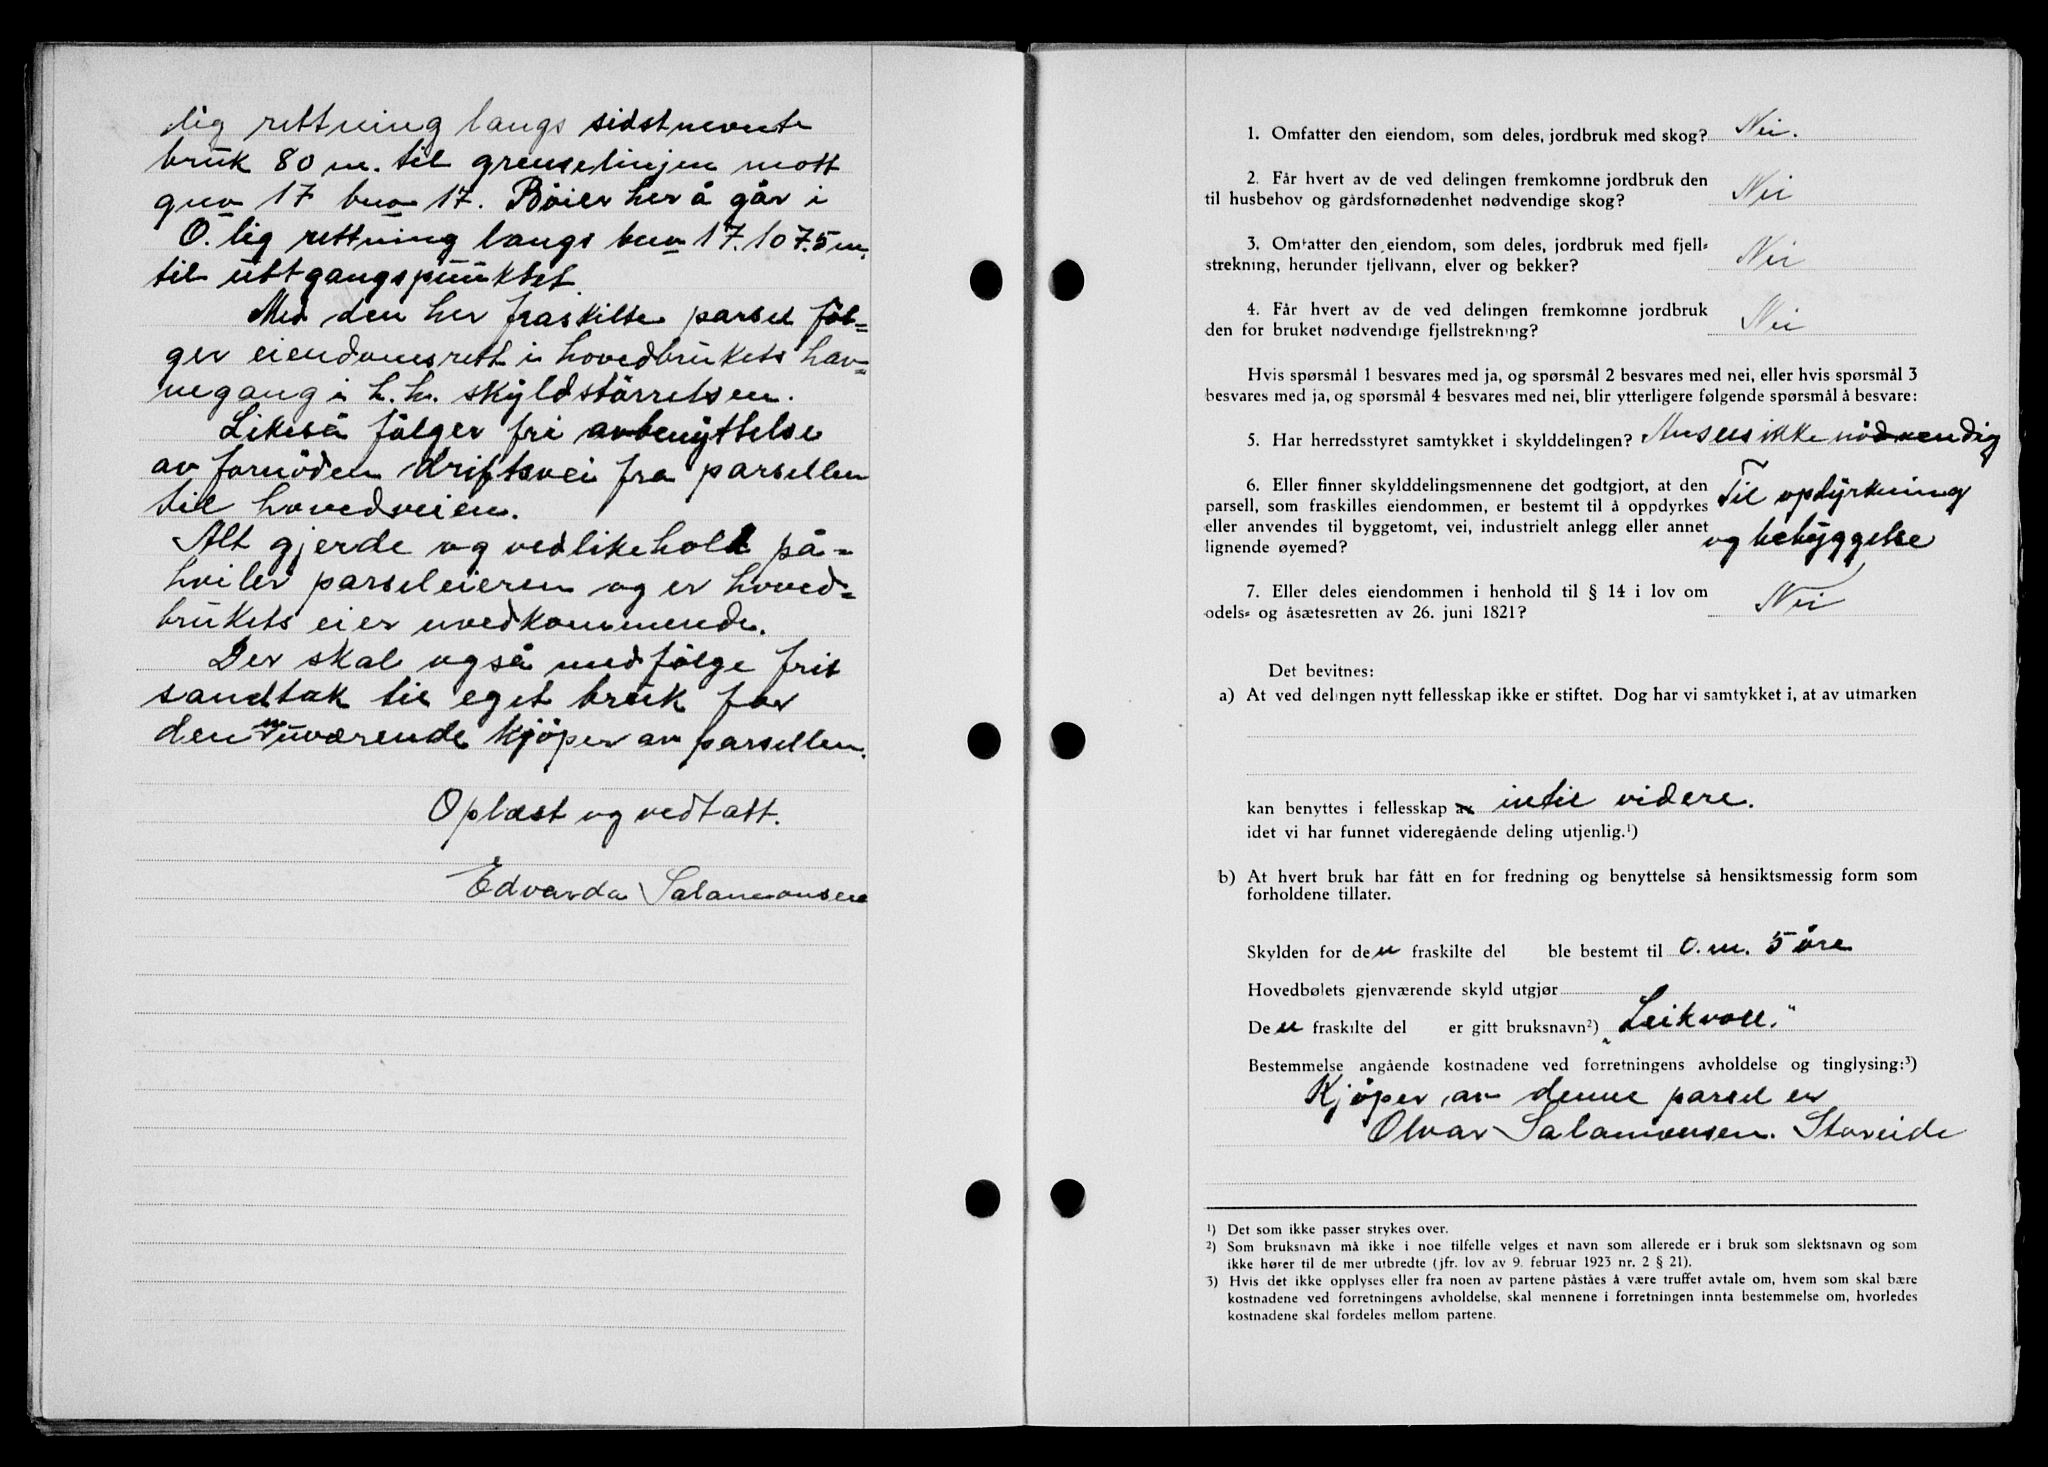 lig rettning langs sidstnevnte
bruk 80 m. til grenselinjen mott
gno 17 bno 17. Böier her å går i
O. lig rettning langs bno 17. 107.5 m.
til uttgangspunktet.
Med den her fraskilte parsel föl-
ger eiendomsrett i hovedbrukets hav-
negang i h. h. skyldstörrelsen.
Likeså fölger fri avbenyttelse
av fornöden driftsvei fra parsellen
til hovedveien.
Alt gjerde og vedlikehold på-
hviler parseleieren og er hoved-
brukets eier uvedkommende.
Der skal også medfölge frit
sandtak til eget bruk for
den nuværende kjöper av parsellen.
Oplæst og vedtatt.
Edvarda Salamonsen
1. Omfatter den eiendom, som deles, jordbruk med skog? Nei.
2. Får hvert av de ved delingen fremkomne jordbruk den
til husbehov og gårdsfornødenhet nødvendige skog? Nei
3. Omfatter den eiendom, som deles, jordbruk med fjell-
strekning, herunder fjellvann, elver og bekker? Nei
4. Får hvert av de ved delingen fremkomne jordbruk
den for bruket nødvendige fjellstrekning? Nei
Hvis spørsmål 1 besvares med ja, og spørsmål 2 besvares med nei, eller hvis spørsmål 3
besvares med ja, og spørsmål 4 besvares med nei, blir ytterligere følgende spørsmål å besvare:
5. Har herredsstyret samtykket i skylddelingen? Ansees ikke nödvendig
6. Eller finner skylddelingsmennene det godtgjort, at den
parsell, som fraskilles eiendommen, er bestemt til å oppdyrkes
eller anvendes til byggetomt, vei, industrielt anlegg eller annet
lignende øyemed? Til opdyrkning
og bebyggelse
7. Eller deles eiendommen i henhold til § 14 i lov om
odels- og åsætesretten av 26. juni 1821? Nei
Det bevitnes:
a) At ved delingen nytt fellesskap ikke er stiftet. Dog har vi samtykket i, at av utmarken
kan benyttes i fellesskap av intil videre.
idet vi har funnet videregående deling utjenlig.¹)
b) At hvert bruk har fått en for fredning og benyttelse så hensiktsmessig form som
forholdene tillater.
Skylden for den fraskilte del ble bestemt til 0. m. 5 öre
Hovedbølets gjenværende skyld utgjør
Den fraskilte del er gitt bruksnavn²) „Leikvoll."
Bestemmelse angående kostnadene ved forretningens avholdelse og tinglysing:³)
Kjöper av denne parsel er
Olvar Salamonsen. Storeide
¹) Det som ikke passer strykes over.
²) Som bruksnavn må ikke i noe tilfelle velges et navn som allerede er i bruk som slektsnavn og som
ikke hører til de mer utbredte (jfr. lov av 9. februar 1923 nr. 2 § 21).
³) Hvis det ikke opplyses eller fra noen av partene påståes å være truffet avtale om, hvem som skal bære
kostnadene ved forretningens avholdelse, skal mennene i forretningen innta bestemmelse om, hvorledes
kostnadene skal fordeles mellom partene.